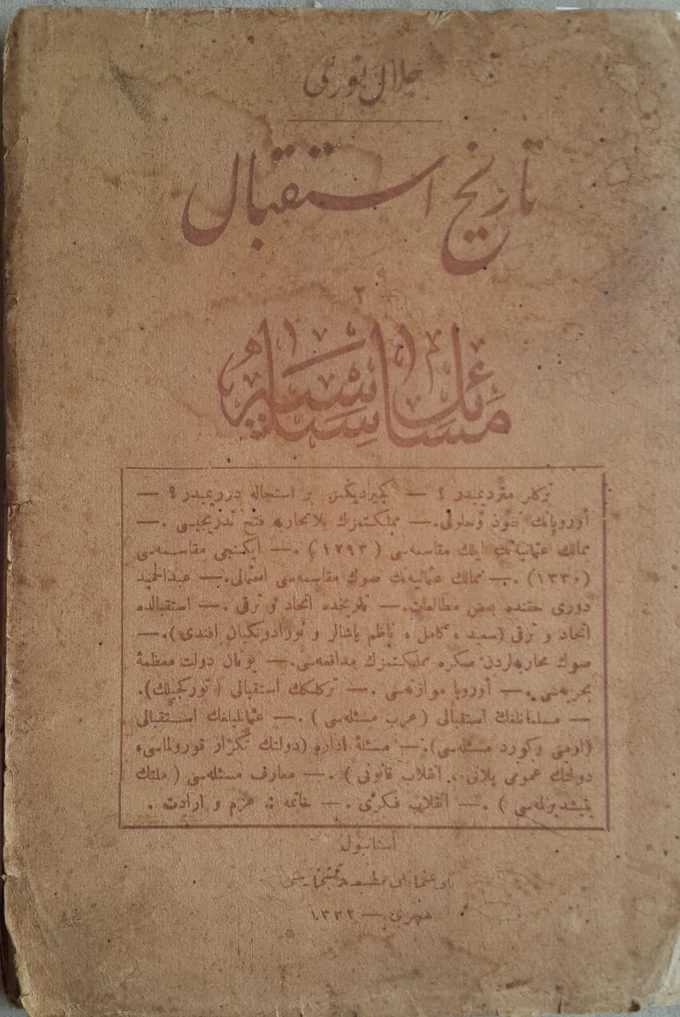 جلال نوری
تاریخ استقبال
— ۲ —
مسائل سیاسیه
تركلر متردیمیدر ؟ — كچیردیكمز بر استحاله دورىمیدر ؟ —
اوروپانك نفوذ و حلولی. — مملكتمزك بلامحاربه فتح تدریجیسی. —
ممالك عثمانیه‌نك ایلك مقاسمه‌سی (۱۲۹۳). — ایكنجی مقاسمه‌سی
(۱۳۳۰). — ممالك عثمانیه‌نك صوك مقاسمه‌سی احتمالی. — عبدالحمید
دوری حقنده بعض مطالعات. — تاریخده اتحاد و ترقی. — استقبالده
اتحاد و ترقی (سعید، كامل، ناظم پاشالر و نورادونكیان افندی). —
صوك محاربه‌لردن صكره مملكتمزك مدافعه‌سی. — یونان دولت معظمهٔ
بحریه‌سی. — اوروپا موازنه‌سی. — تركلكك استقبالی (توركجیلك).
— مسلمانلغك استقبالی (عرب مسئله‌سی). — عثمانلیلغك استقبالی
(ارمنی و كورد مسئله‌سی). — مسئلهٔ اداره (دولتك تكرار قورولماسی،
دولتك عمومی پلانی، انقلاب قانونی). — معارف مسئله‌سی (ملتك
یتیشدیرلمه‌سی). — انقلاب فكری. — خاتمه: عزم و ارادت.
استانبول
مطبعه و كتبخانه‌سی
هجری — ۱۳۳۲